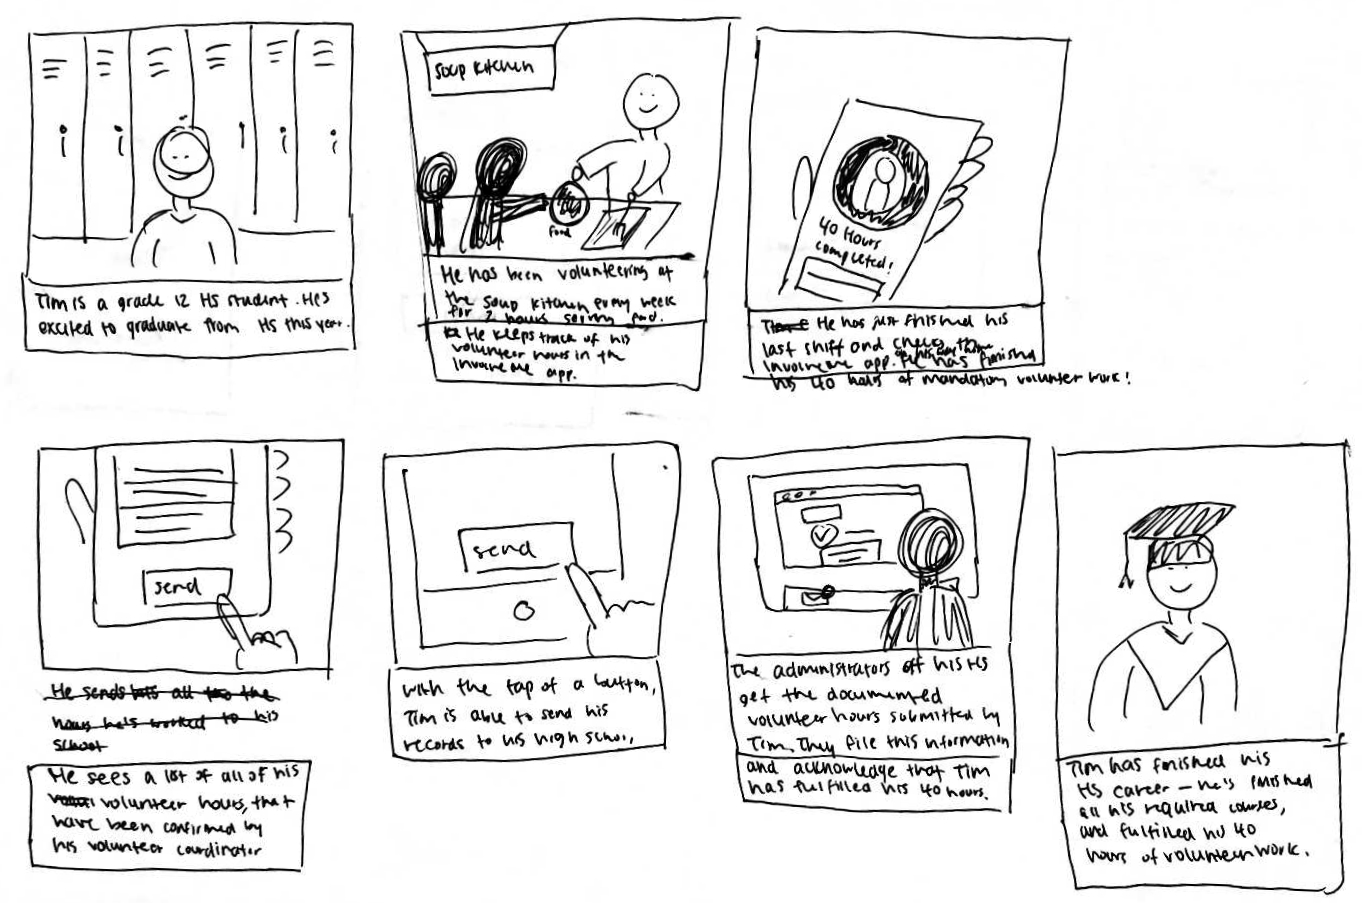 Tim is a grade 12 HS student. He's
excited to graduate from HS this year.
Soup Kitchen
food
He has been volunteering at
the soup kitchen every week
for 2 hours serving food.
He keeps track of his
volunteer hours in the
involve me app.
40 Hours
completed!
He has just finished his
last shift and checks the
involve me app. on his way home He has finished
his 40 hours of mandatory volunteer work!
send
He sends all the
hours he's worked to his
school
He sees a list of all of his
volunteer hours, that
have been confirmed by
his volunteer coordinator
send
with the tap of a button,
Tim is able to send his
records to his high school.
The administrators off his HS
get the documented
volunteer hours submitted by
Tim. They file this information
and acknowledge that Tim
has fulfilled his 40 hours.
Tim has finished his
HS career — he's finished
all his required courses,
and fulfilled his 40
hours of volunteer work.